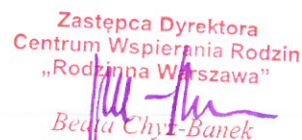 Zastępca Dyrektora
Centrum Wspierania Rodzin
„Rodzinna Warszawa"
Beata Chyż-Banek